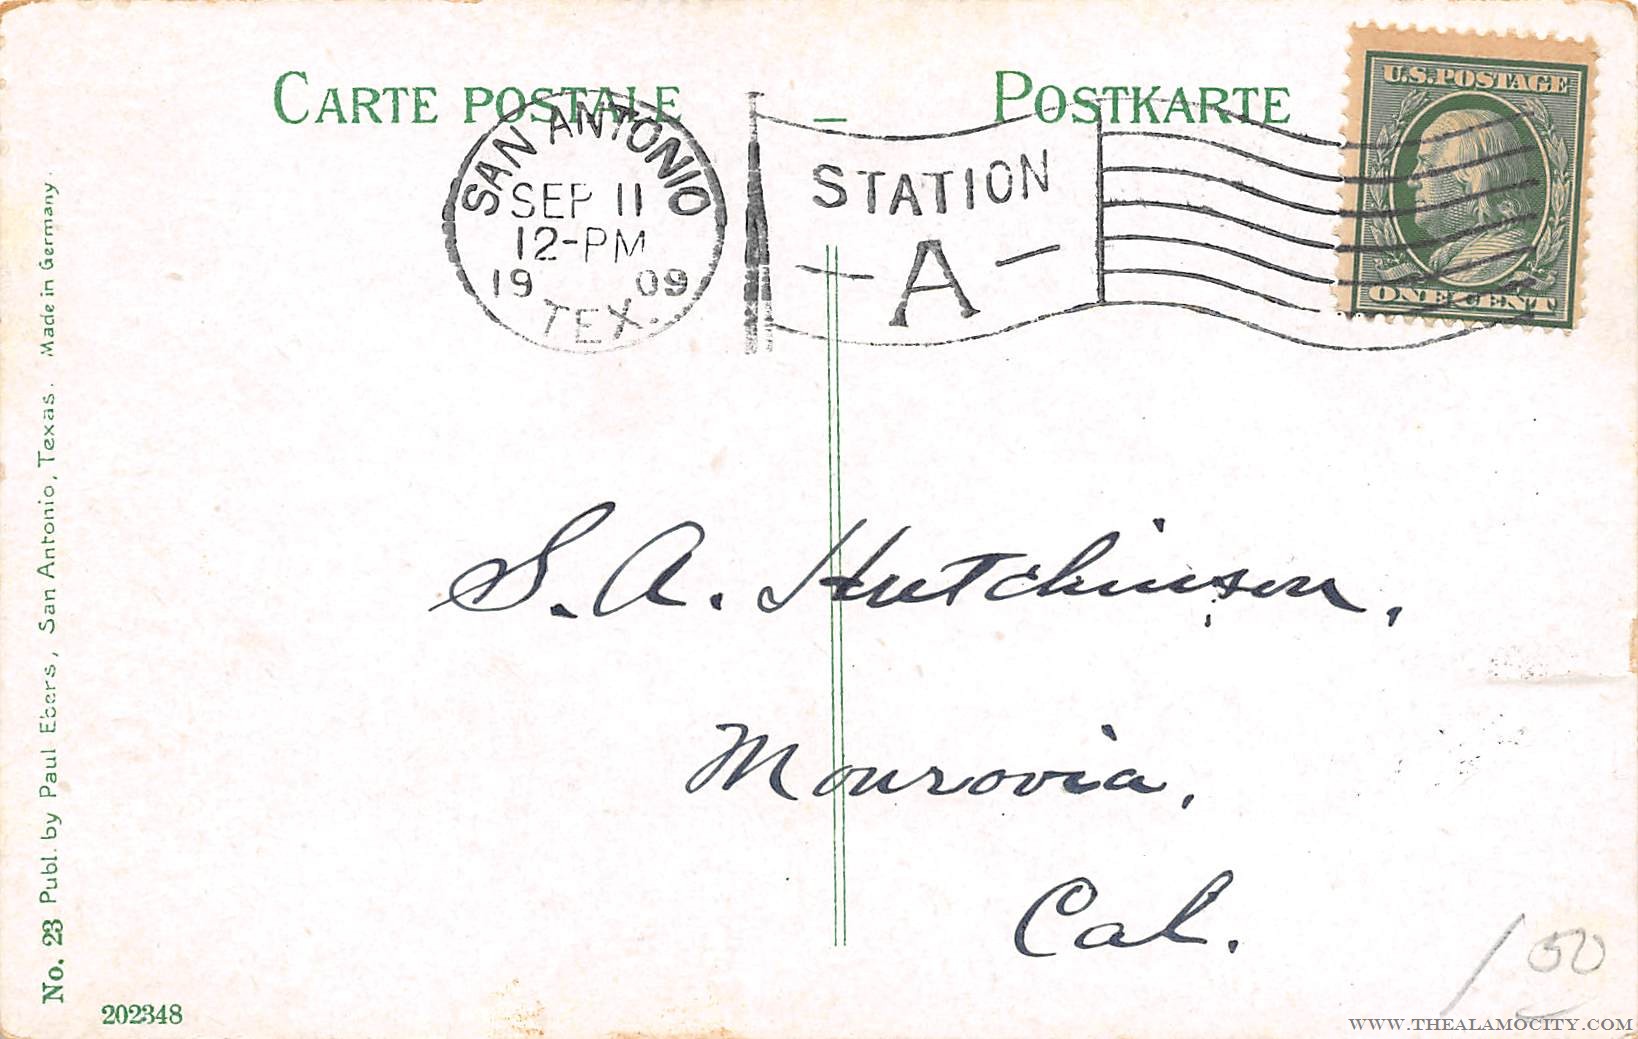 CARTE POSTALE – POSTKARTE
U.S. POSTAGE
ONE CENT
SAN ANTONIO
SEP 11
12-PM
1909
TEX.
STATION
-A-
S. A. Hutchinson,
Monrovia,
Cal.
1 50
No. 23 Publ. by Paul Ebers, San Antonio, Texas. Made in Germany.
202348
WWW.THEALAMOCITY.COM